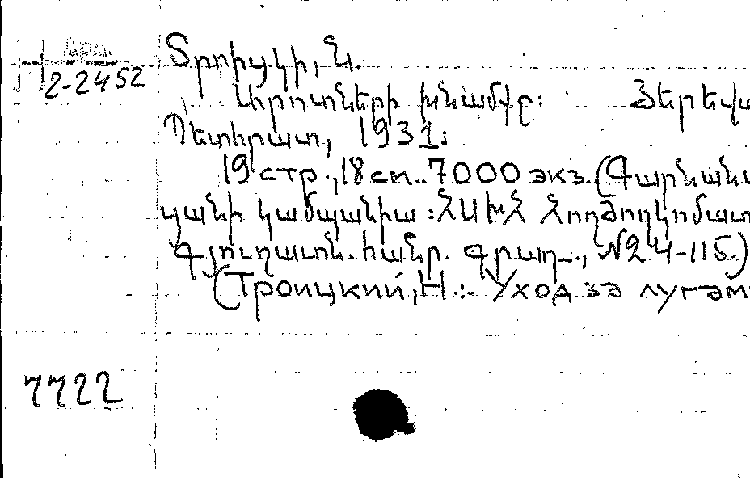 Տրոիցկի, Ն.
2-2452
Մարոտների խնամքը: Յերեվա
Պետհրատ, 1931.
19 стр., 18 см. 7000 экз. (Գարնանա
ցանի կամպանիա: ՀՍԽՀ Հողժողկոմատ
Գյուղատնտ. հանր. գրադ., №24-115.)
(Троицкий, Н.: Уход за лугам
7722